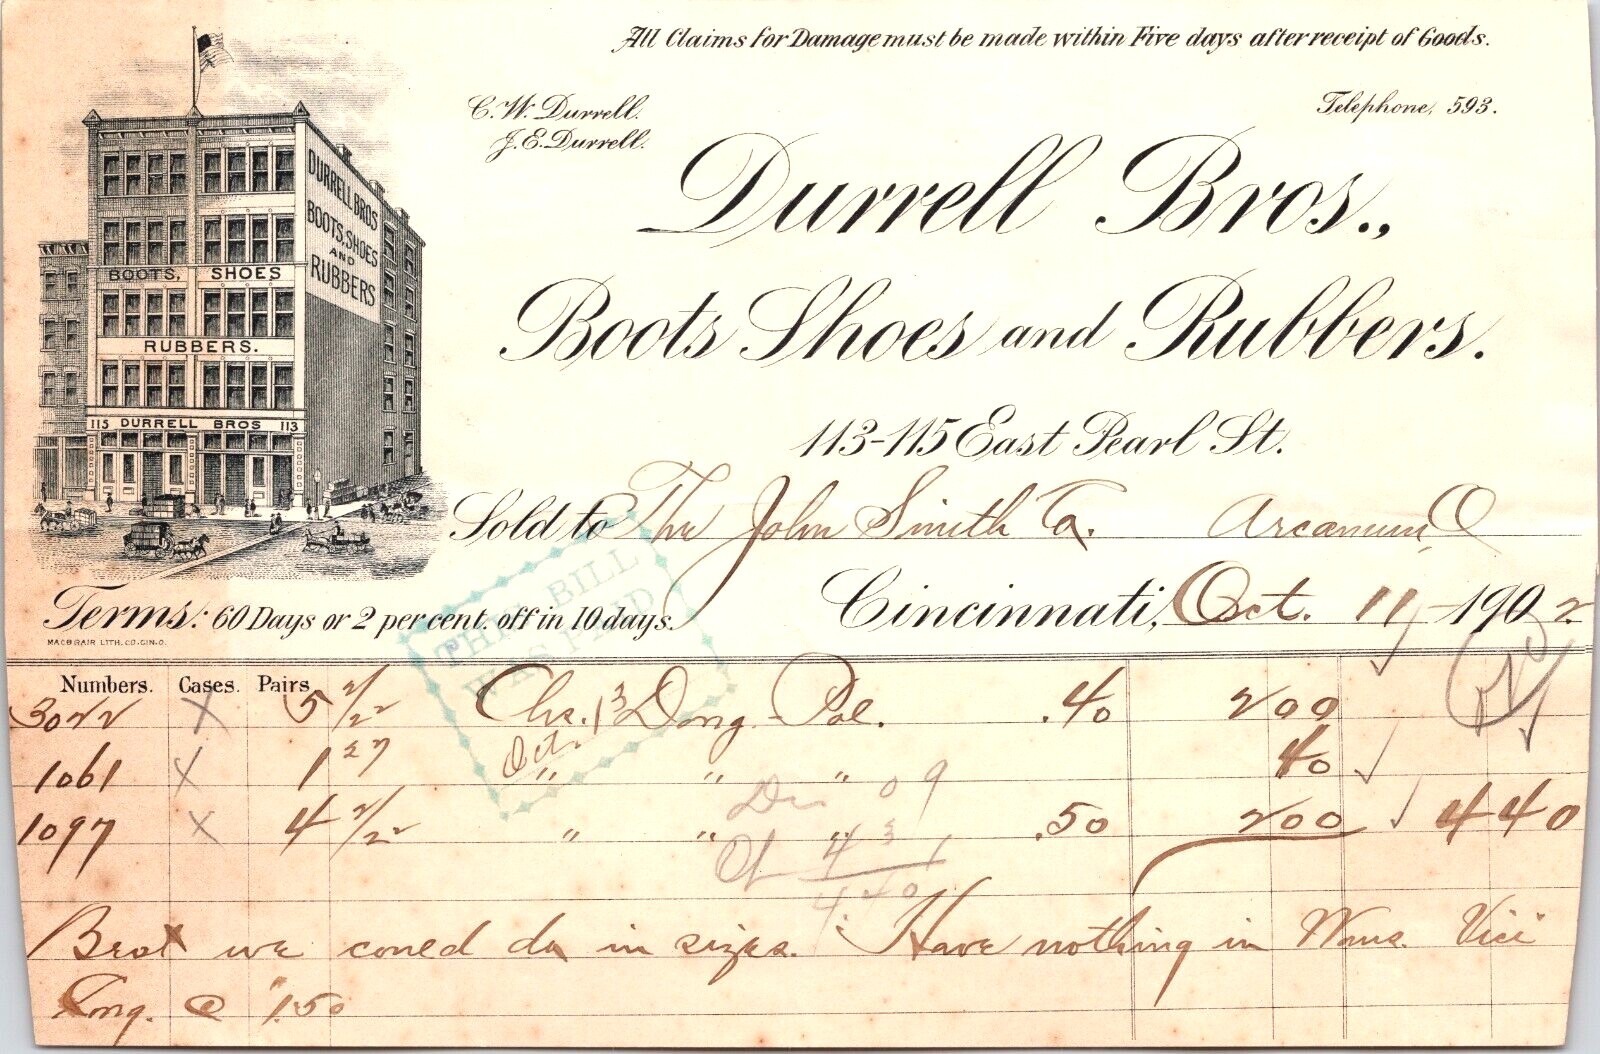 All Claims for Damage must be made within Five days after receipt of Goods.
C. W. Durrell.
J. E. Durrell.
Telephone, 593.
Durrell Bros.,
Boots Shoes and Rubbers.
113-115 East Pearl St.
DURRELL BROS
BOOTS, SHOES
AND
RUBBERS
BOOTS, SHOES
RUBBERS.
115 DURRELL BROS 113
Sold to The John Smith Co. Arcanum, O
Cincinnati, Oct. 11 1902
Terms: 60 Days or 2 per cent. off in 10 days.
MACBRAIR LITH. CO. CIN. O.
THIS BILL
WAS PAID
Oct. 13
Numbers. Cases. Pairs
3022 X 5 2/22 Chs. Dong. Pol. .40 200
1061 X 1 27 " " " 40
1097 X 4 2/22 " " " .50 200 440
Dis 09
Of 4 31
440
Best we could do in sizes. Have nothing in Wms. Vici
Dong. @ 1.50